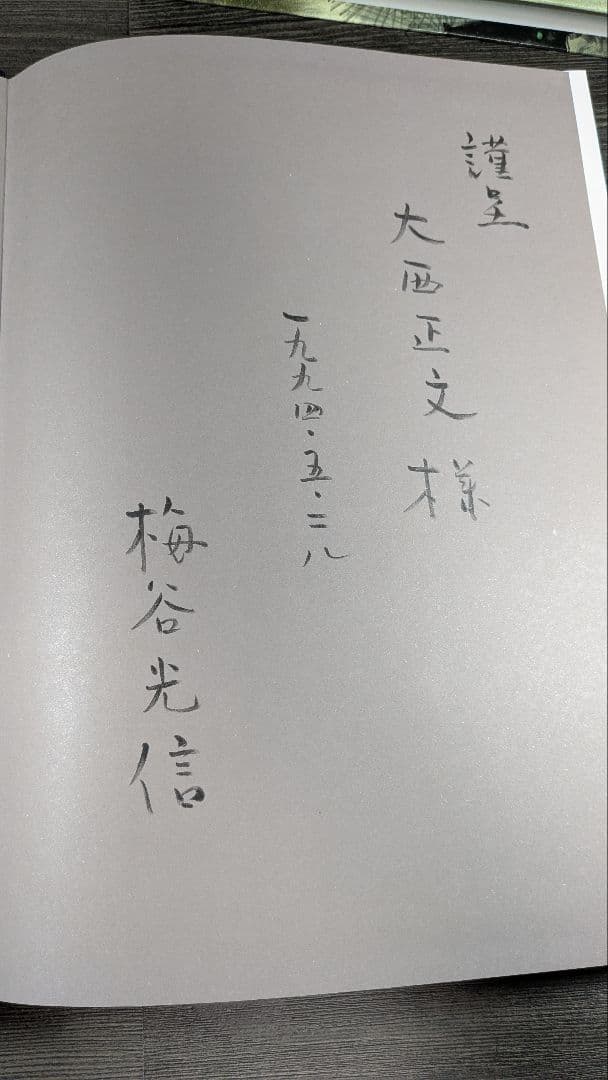 謹呈
大西正文様
一九九四・五・二八
梅谷光信